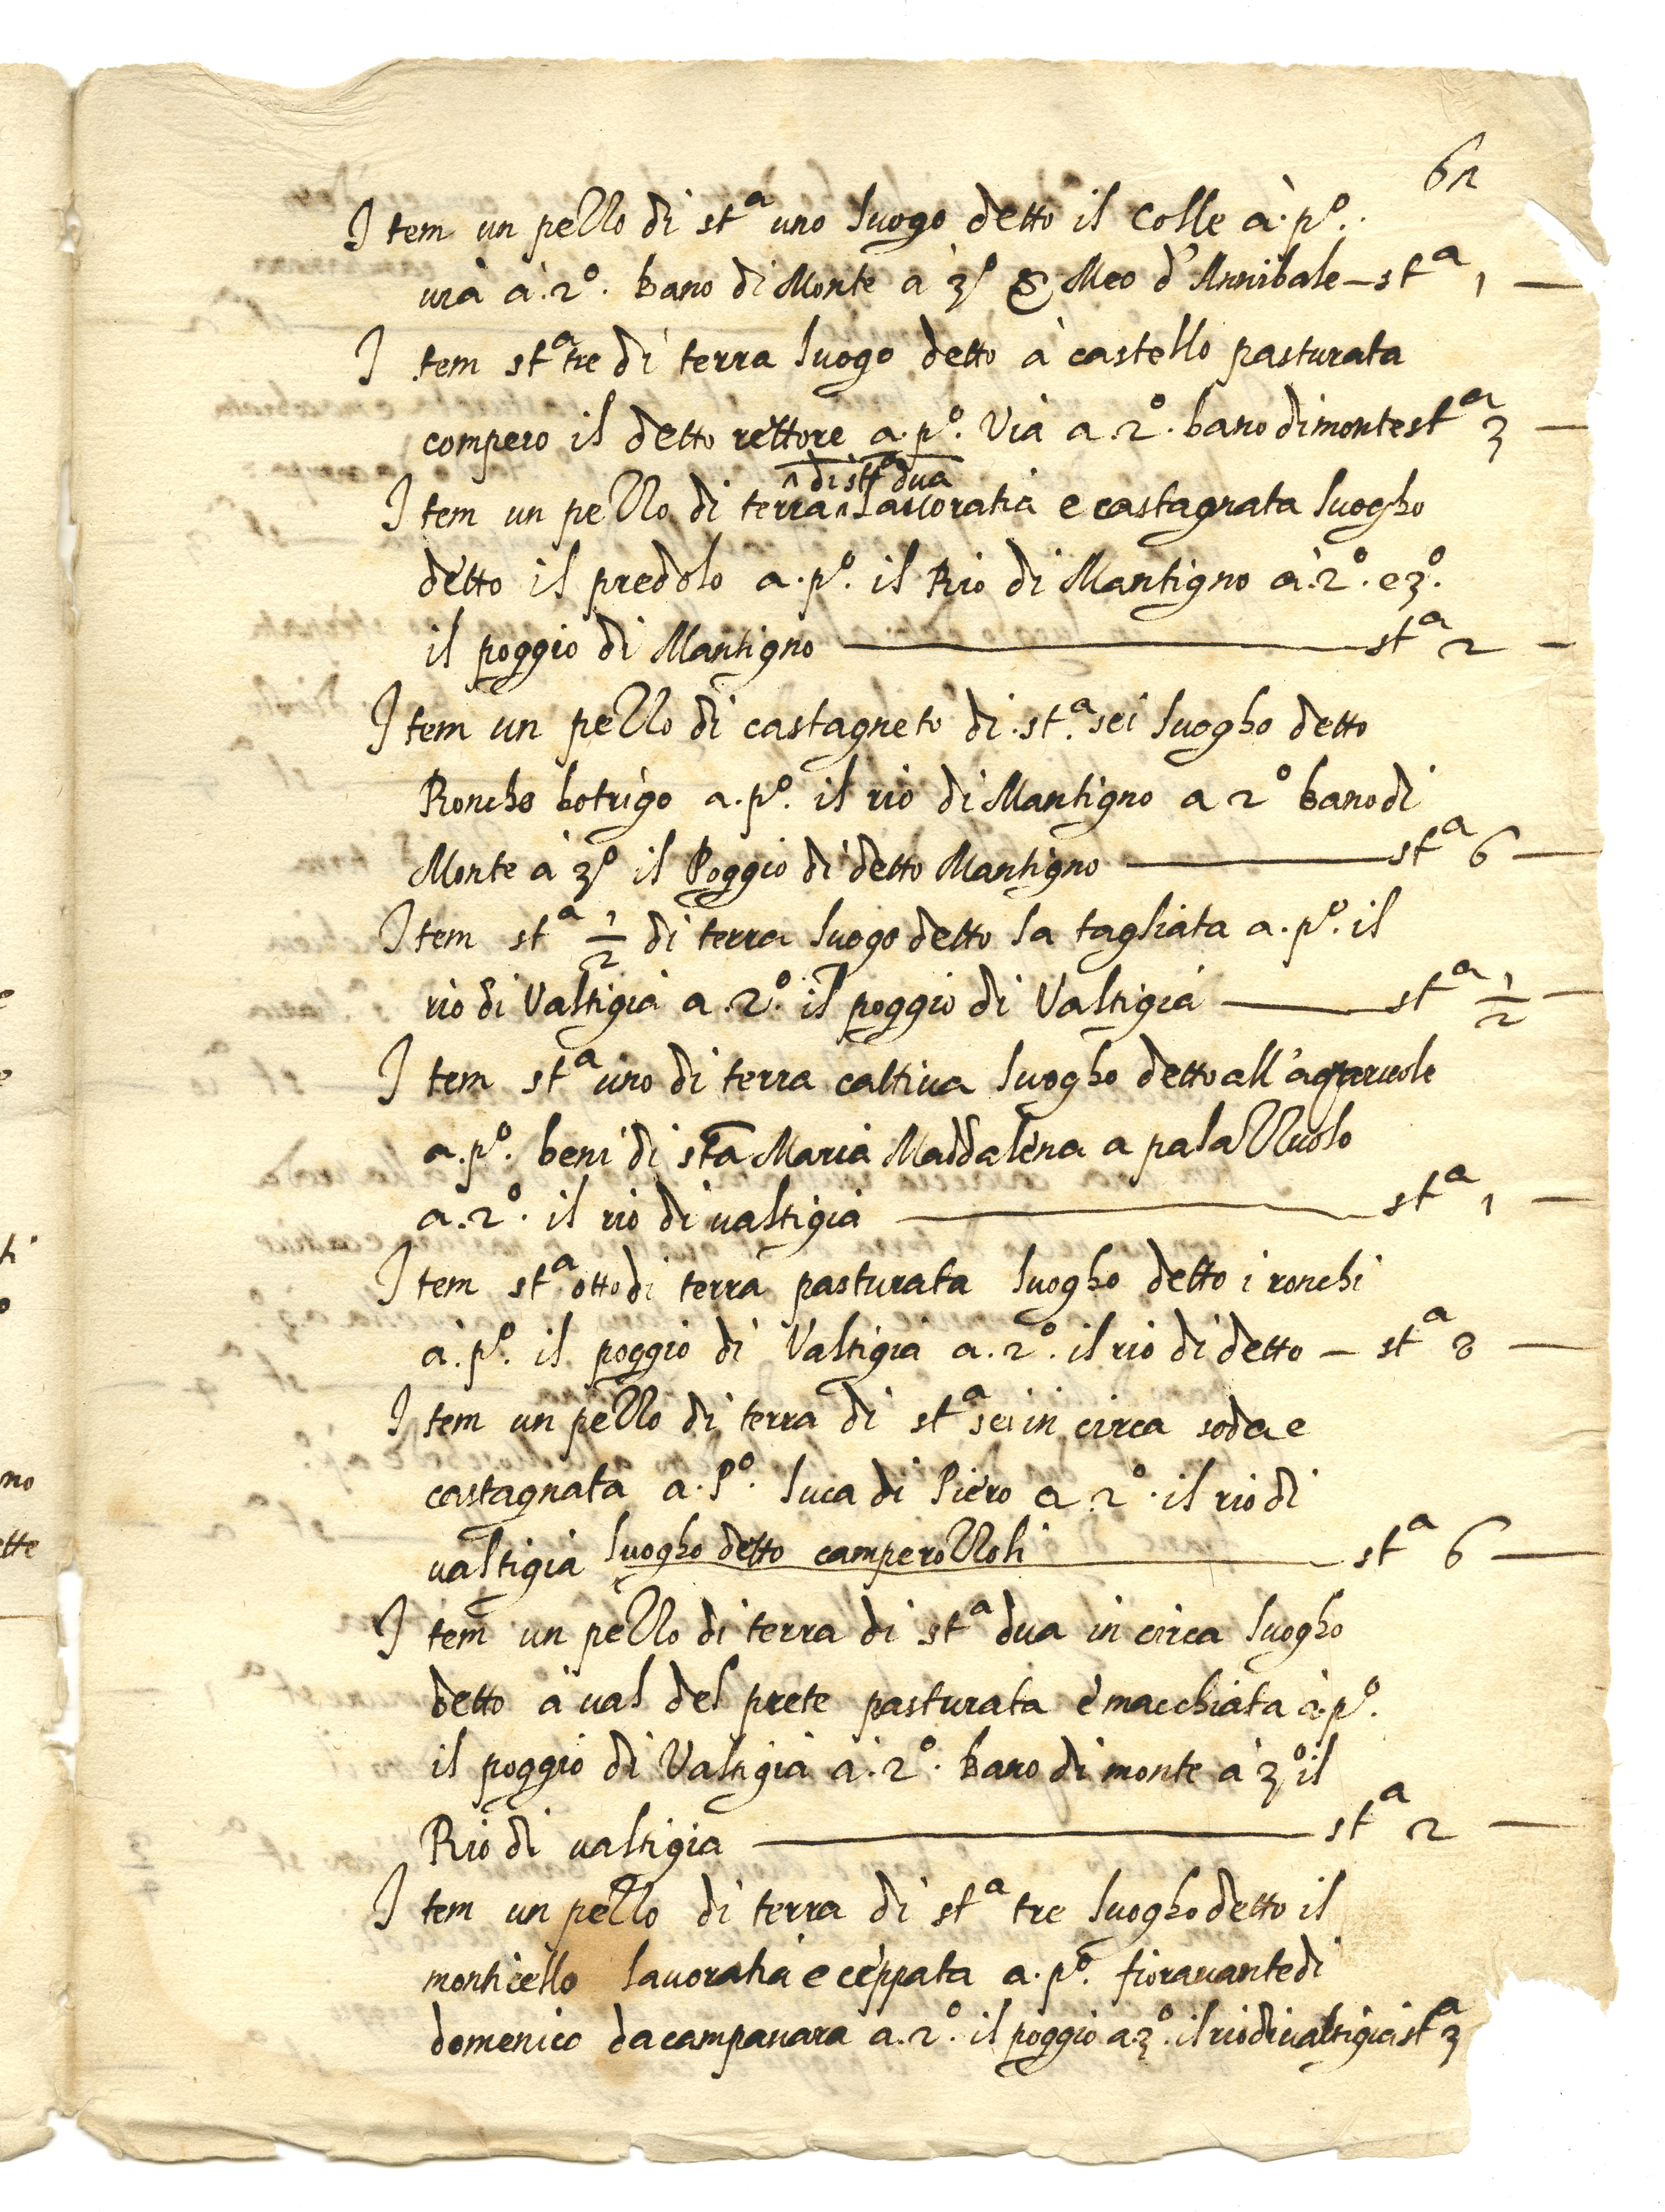 61
Item un pezzo di st.a uno luogo detto il Colle à. p.o.
via à. 2.o. Bano di Monte a 3.o & Meo d'Annibale — st.a 1 —
Item st.a tre di terra luogo detto à castello pasturata
compero il detto rettore a. p.o. Via a. 2.o. bano di monte st.a 3 —
^ di st.a dua
Item un pezzo di terra ^ Lavoratia e castagnata luogho
detto il predolo a. p.o. il Rio di Mantigno à. 2.o. e 3.o.
il poggio di Mantigno — st.a 2 —
Item un pezzo di castagneto di. st.a sei luogho detto
Roncho botrigo a. p.o. il rio di Mantigno a 2.o bano di
Monte à 3.o il Poggio di detto Mantigno — st.a 6 —
Item st.a 1/2 di terra luogo detto la tagliata a. p.o. il
rio di Valtigia a. 2.o. il poggio di Valtigia — st.a 1/2 —
Item st.a uno di terra caltiva luogho detto all'
a. p.o. beni di sta Maria Maddalena a palazzuolo
a. 2.o. il rio di valtigia — st.a 1 —
Item st.a otto di terra pasturata luogho detto i ronchi
à. p.o. il poggio di Valtigia a. 2.o. il rio di detto — st.a 8 —
Item un pezzo di terra di st.a sei in circa soda e
castagnata a. P.o. luca di Piero a 2.o. il rio di
valtigia luogho detto camperozzoli — st.a 6 —
Item un pezzo di terra di st.a dua in circa luogho
detto à val del prete pasturata è macchiata à. p.o.
il poggio di Valtigia à. 2.o. Bano di monte à 3.o il
Rio di valtigia — st.a 2 —
Item un pezzo di terra di st.a tre luogho detto il
monticello lavoratia e ceppata a. p.o. fioravante di
domenico da campanara a. 2.o. il poggio a 3.o. il rio di valtigia st.a 3